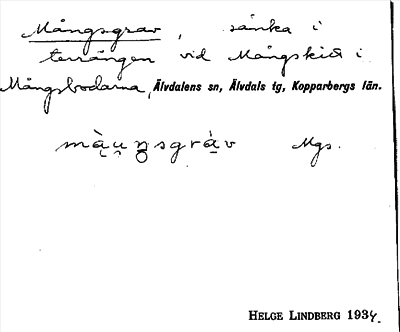 Mångsgrav, sänka i
terrängen vid Mångskid i
Mångsbodarna, Älvdalens sn, Älvdals tg, Kopparbergs län.
Mgs.
HELGE LINDBERG 1934.